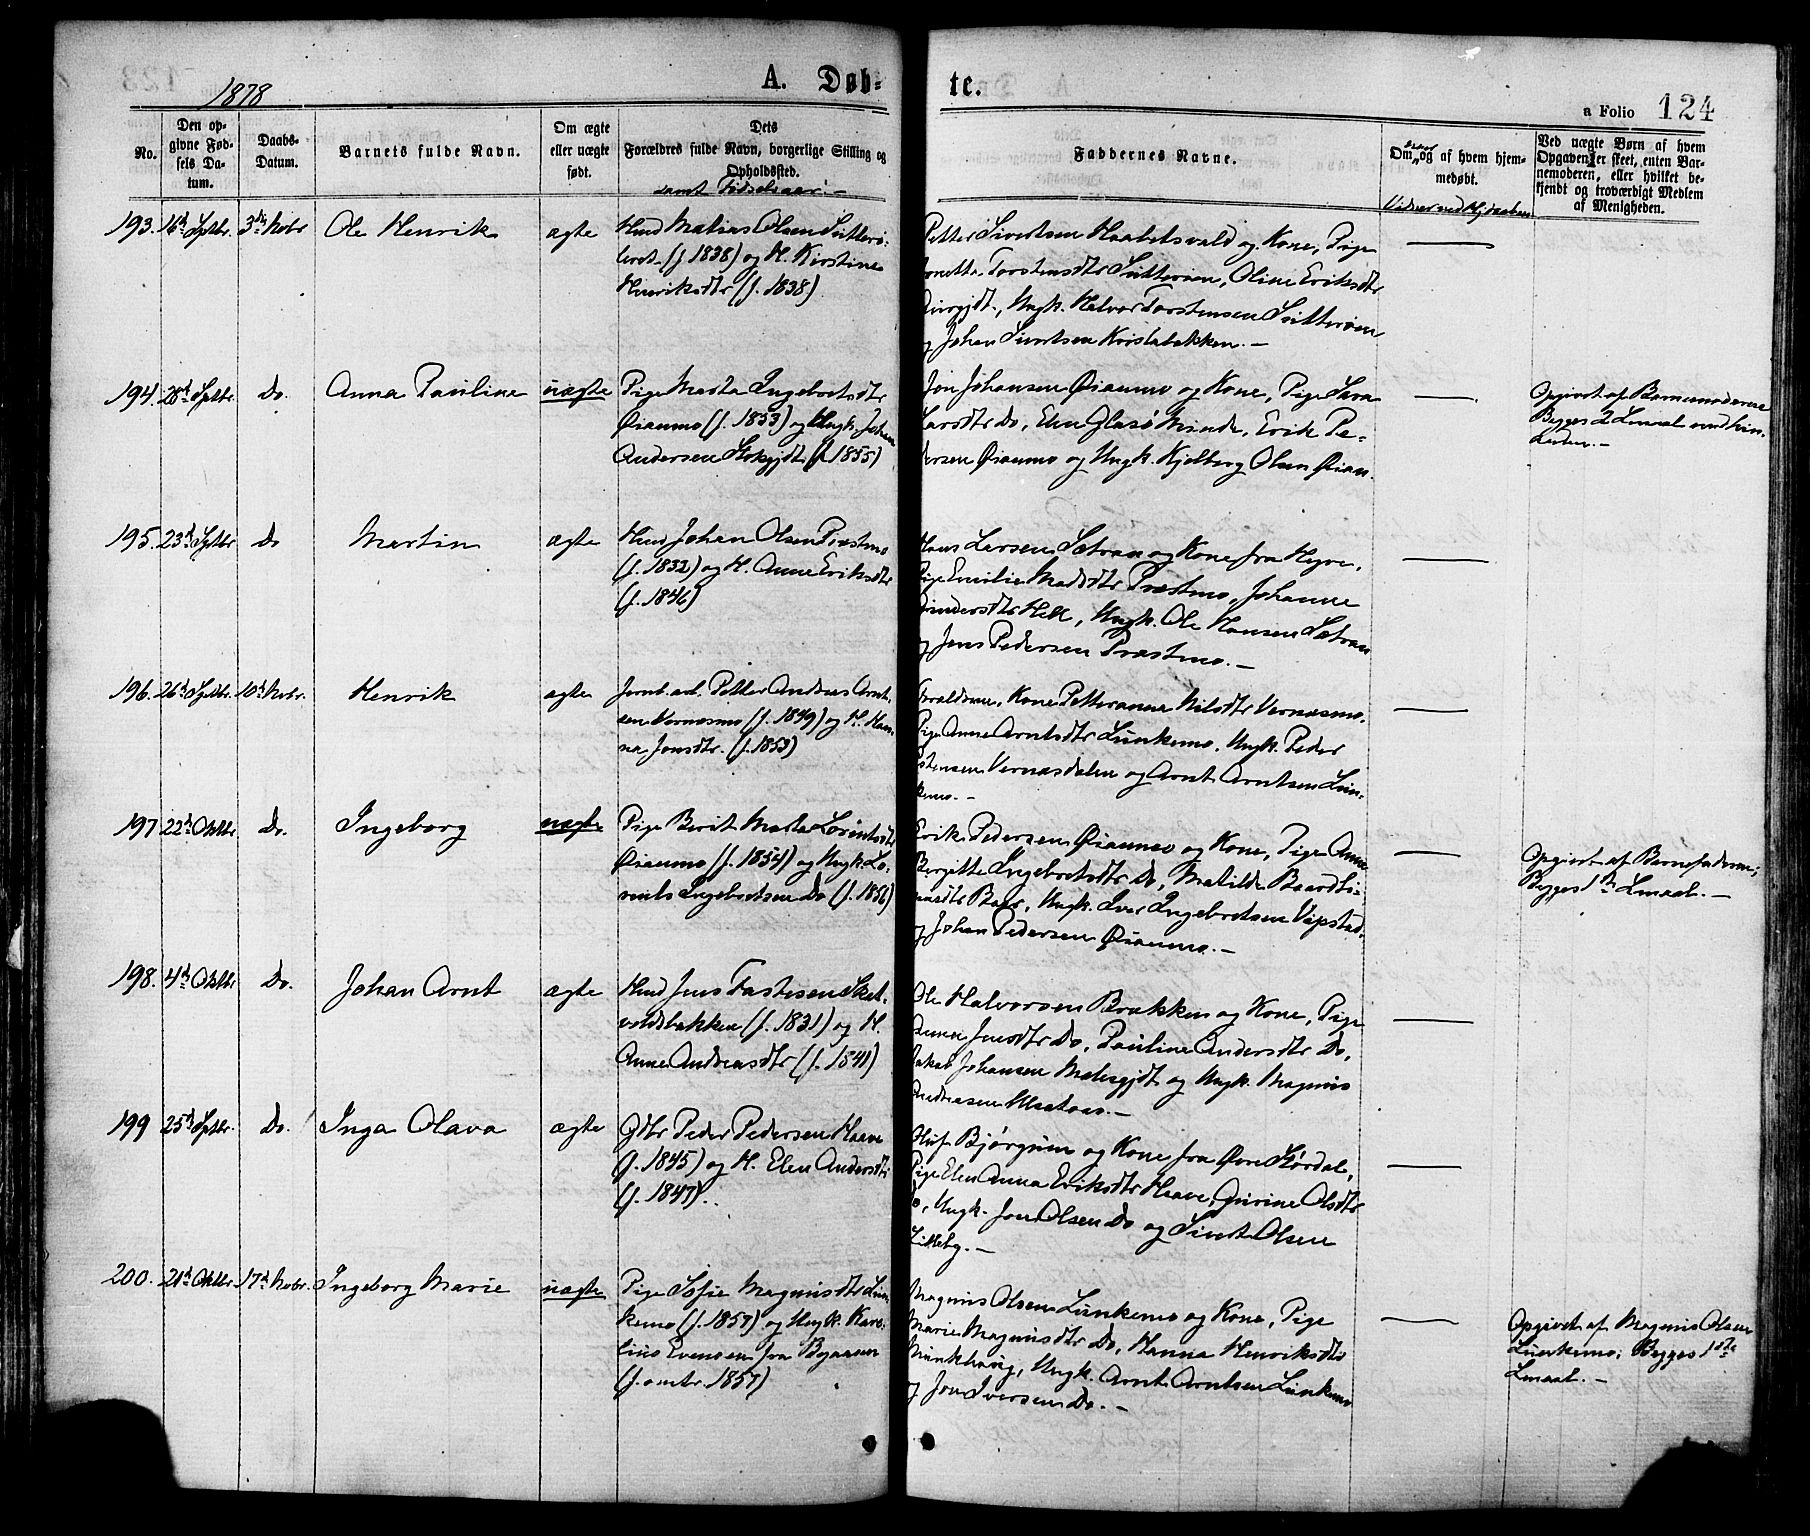 1878
A. Døb-
te.
a Folio 124
No.
Den op-
givne Fød-
sels Da-
tum.
Daabs-
Datum.
Barnets fulde Navn.
Om ægte
eller uægte
født.
Dets
Forældres fulde Navn, borgerlige Stilling og
Opholdssted.
samt Fødselsaar.-
Faddernes Navne.
Om og af hvem hjem-
medøbt.
Ved uægte Børn af hvem
Opgaven er skeet, enten Bar-
nemoderen, eller hvilket be-
kjendt og troværdigt Medlem
af Menigheden.
193. 16d Sptbr. 3d Novbr Ole Henrik ægte
Hmd Matias Olsen Sutterø-
leret (f 1838) og H. Kirstine
Henriksdtr (f. 1838)
Petter Sivertsen Haabetsvald og Kone, Pige
Torstensdtr Sutterøen, Oline Eriksdtr
Ungk. Halvor Torstensen Sutterøen
og Johan Sivertsen Korstabakken.-
194. 28d Sptbr. Do. Anna Pauline uægte
Pige Marta Ingebrtsdtr
Øianmo (f. 1853) og Ungk. Johan
Andersen (f. 1855)
Jon Johansen Øianmo og Kone, Pige Sara
Larsdtr Do, Elen Glasø Minde, Erik Pe-
dersen Øianmo og Ungk. Kjelberg Olsen Øian.
Opgivet af Barnemoderen
Begges 2 Lmaal
195. 23d Sptbr Do Martin ægte
Hmd Johan Olsen Præstmo
(f. 1832) og H. Anne Eriksdtr
(f. 1846)
Hans Larsen Sætran og Kone fra Hegre,
Pige Emilie Madsdtr Præstmo, Johanne
Hell, Ungk. Ole Hansen Sætran
og Jens Pedersen Præstmo.-
196. 26d Sptbr. 10d Novbr. Henrik ægte
Jernb. arb. Petter Andreas Arnt-
sen Værnesmo (f. 1849) og H. Han-
na Jonsdtr. (f. 1853)
Forældrene, Kone Petteranna Nilsdtr Værnesmo.
Pige Anne Arntsdtr Lunkemo. Ungk. Peder
Værnesdalen og Arnt Arntsen Lun-
kemo.-
197 22d Oktbr. Do. Ingeborg uægte
Pige Berit Marta Lorentsdtr
Øianmo (f. 1854) og Ungk. Lo-
rents Ingebrtsen Do (f. 1856)
Erik Pedersen Øianmo og Kone, Pige Anne
Bergitte Ingebrtsdtr Do, Matilde
Ungk. Iver Ingebrtsen Vipstad.
og Johan Pedersen Øianmo.-
Opgivet af Barnefaderen;
Begges 1ste Lmaal.-
198. 4d Oktbr. Do. Johan Arnt ægte
Hmd Jens Fastesen Sket-
voldsbakken (f. 1831) og H.
Anne Andreasdtr (f. 1841)
Ole Halvorsen Brækken og Kone, Pige
Anna Jensdtr Do, Pauline Andersdtr Do,
Jakob Johansen og Ungk. Magnus
Andreasen
199 25d Sptbr. Do. Inga Olava ægte
Gdbr Peder Pedersen Haave
(f. 1845) og H. Elen Andersdtr
(f. 1847).
Oluf Bjørgum og Kone fra Øvre Størdal,
Pige Elen Anna Eriksdtr Haave, Gurine Olsdtr
Do, Ungk. Jon Olsen Do og Sivert Olsen
Lilleby.-
200. 21d Oktbr. 17d Novbr. Ingeborg Marie uægte
Pige Sofie Magnusdtr Lun-
kemo (f. 1857) og Ungk. Kare-
lius Evensen fra Bynæsset
(f. omtr. 1857)
Magnus Olsen Lunkemo og Kone, Pige
Marie Magnusdtr Do, Hanna Henriksdtr
Munkhaug, Ungk. Arnt Arntsen Lunkemo
og Jon Iversen Do.-
Opgivet af Magnus Olsen
Lunkemo; Begges 1ste
Lmaal.-